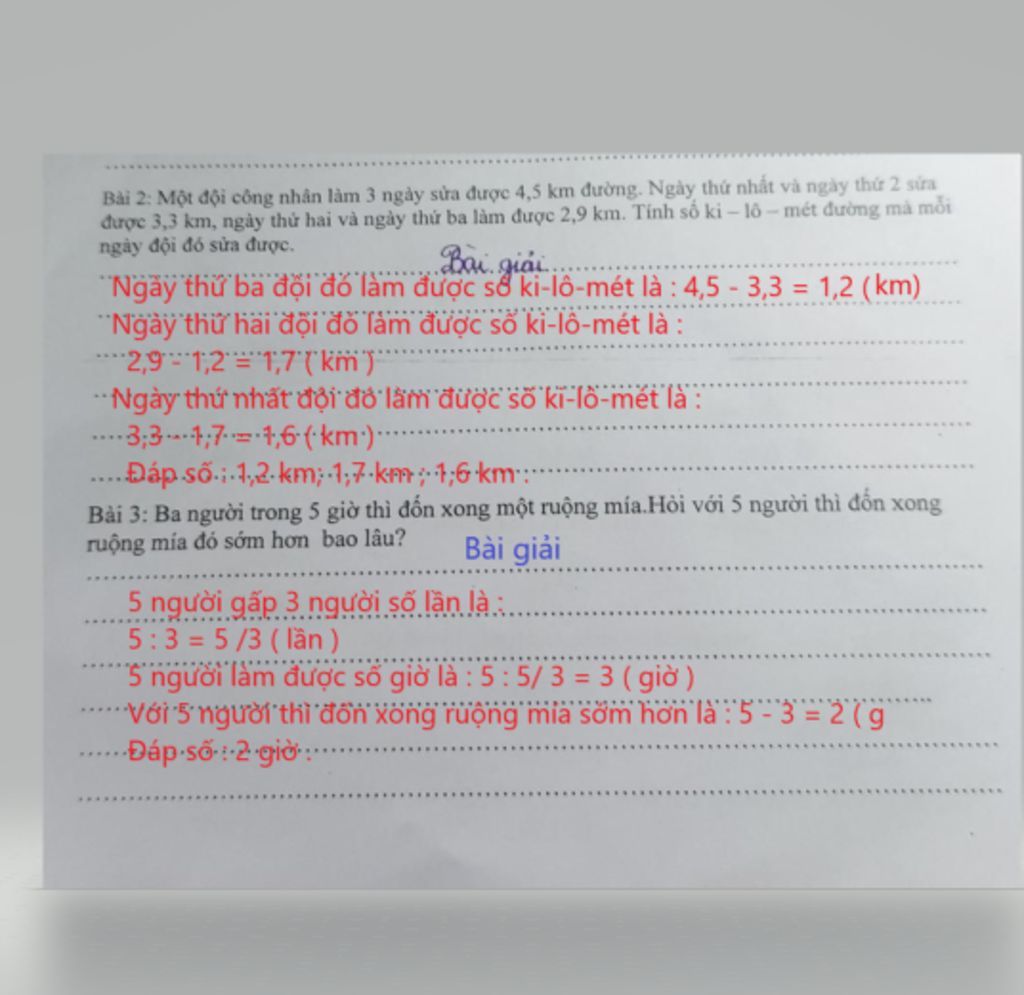 Bài 2: Một đội công nhân làm 3 ngày sửa được 4,5 km đường. Ngày thứ nhất và ngày thứ 2 sửa
được 3,3 km, ngày thứ hai và ngày thứ ba làm được 2,9 km. Tính số ki – lô – mét đường mà mỗi
ngày đội đó sửa được.
Bài giải
Ngày thứ ba đội đó làm được số ki-lô-mét là : 4,5 - 3,3 = 1,2 ( km)
Ngày thứ hai đội đó làm được số ki-lô-mét là :
2,9 - 1,2 = 1,7 ( km )
Ngày thứ nhất đội đó làm được số ki-lô-mét là :
3,3 - 1,7 = 1,6 ( km )
Đáp số : 1,2 km; 1,7 km ; 1,6 km .
Bài 3: Ba người trong 5 giờ thì đốn xong một ruộng mía.Hỏi với 5 người thì đốn xong
ruộng mía đó sớm hơn bao lâu?
Bài giải
5 người gấp 3 người số lần là :
5 : 3 = 5 /3 ( lần )
5 người làm được số giờ là : 5 : 5/ 3 = 3 ( giờ )
Với 5 người thì đốn xong ruộng mía sớm hơn là : 5 - 3 = 2 ( g
Đáp số : 2 giờ .